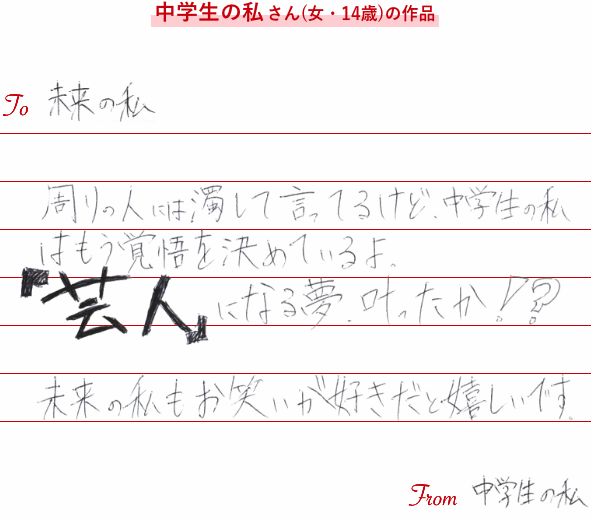 中学生の私さん(女・14歳)の作品
To 未来の私
周りの人には濁して言ってるけど、中学生の私
はもう覚悟を決めているよ。
『芸人』になる夢、叶ったか!?
未来の私もお笑いが好きだと嬉しいです。
From 中学生の私